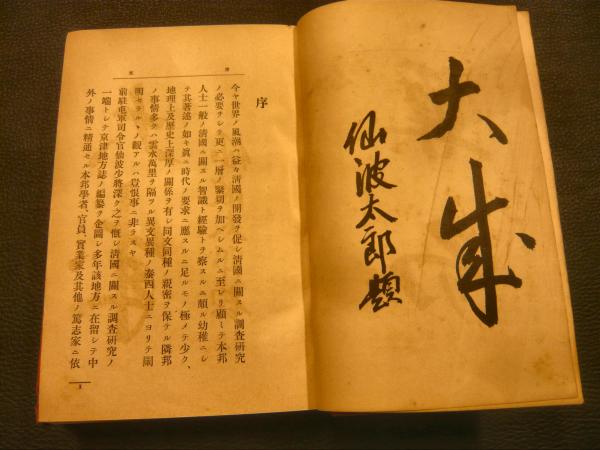 大成
仙波太郎題
序
今ヤ世界ノ風潮ハ益々清國ノ開發ヲ促シ清國ニ關スル調査研究
ノ必要ヲシテ更ニ一層ノ緊切ヲ加ヘシムルニ至レリ顧ミテ本邦
人士一般ノ清國ニ關スル智識ト經驗トヲ察スルニ頗ル幼稚ニシ
テ其著述ノ如キ眞ニ時代ノ要求ニ應スルニ足ルモノ極メテ少ク、
地理上及歷史上深厚ノ關係ヲ有シ同文同種ノ親密ヲ保テル隣邦
ノ事情多クハ雲水萬里ヲ隔ツル異文異種ノ泰西人士ニヨリテ闡
明セラルヽノ觀アルハ豈恨事ニ非ラスヤ
前駐屯軍司令官仙波少將深ク之ヲ慨シ淸國ニ關スル調査研究ノ
一端トシテ京津地方誌ノ編纂ヲ企圖シ多年該地方ニ在留シテ中
外ノ事情ニ精通セル本邦學者、官員、實業家及其他ノ篤志家ニ依